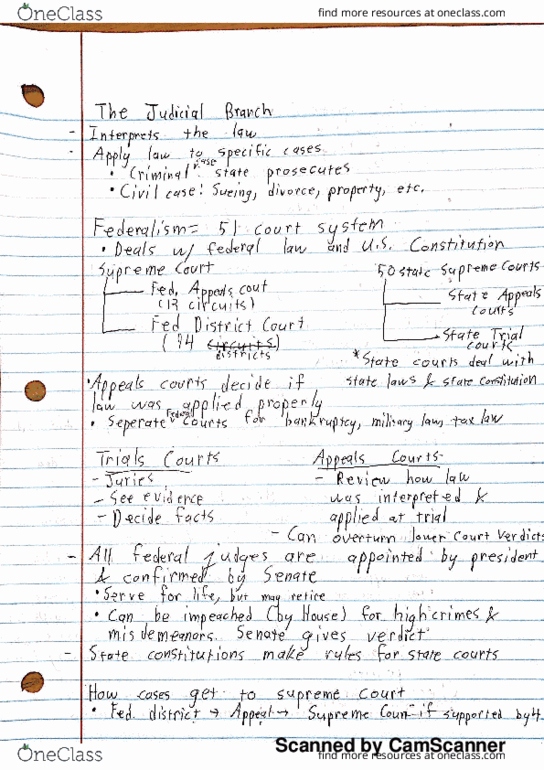 OneClass
find more resources at oneclass.com
The Judicial Branch
- Interprets the law
- Apply law to specific cases
• Criminal case: state prosecutes
• Civil case: Sueing, divorce, property, etc.
Federalism = 51 court system
• Deals w/ federal law and U.S. Constitution
Supreme Court
Fed. Appeals cout
(13 circuits)
Fed District Court
(94 circuits)
districts
50 state Supreme Courts
State Appeals
Courts
State Trial
courts
*State courts deal with
state laws & state constitution
• Appeals courts decide if
law was applied properly
• Seperate Federal courts for bankrupscy, military law, tax law
Trials Courts
- Juries
- See evidence
- Decide facts
Appeals Courts
- Review how law
was interpreted &
applied at trial
- Can overturn lower Court Verdicts
- All federal judges are appointed by president
& confirmed by Senate
• Serve for life, but may retire
• Can be impeached (by House) for high crimes &
misdemeanors. Senate gives verdict
- State constitutions make rules for state courts
How cases get to supreme court
• Fed. district → Appeal → Supreme Coun if supported by 4
Scanned by CamScanner
OneClass
find more resources at oneclass.com